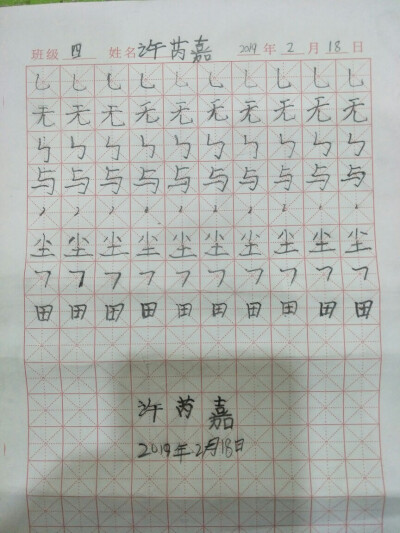 班级 四 姓名 许芮嘉 2019 年 2 月 18 日
乚 乚 乚 乚 乚 乚 乚 乚 乚 乚
无 无 无 无 无 无 无 无 无 无
㇉ ㇉ ㇉ ㇉ ㇉ ㇉ ㇉ ㇉ ㇉ ㇉
与 与 与 与 与 与 与 与 与 与
尘 尘 尘 尘 尘 尘 尘 尘 尘 尘
㇆ ㇆ ㇆ ㇆ ㇆ ㇆ ㇆ ㇆ ㇆ ㇆
田 田 田 田 田 田 田 田 田 田
许芮嘉
2019年.2月18日